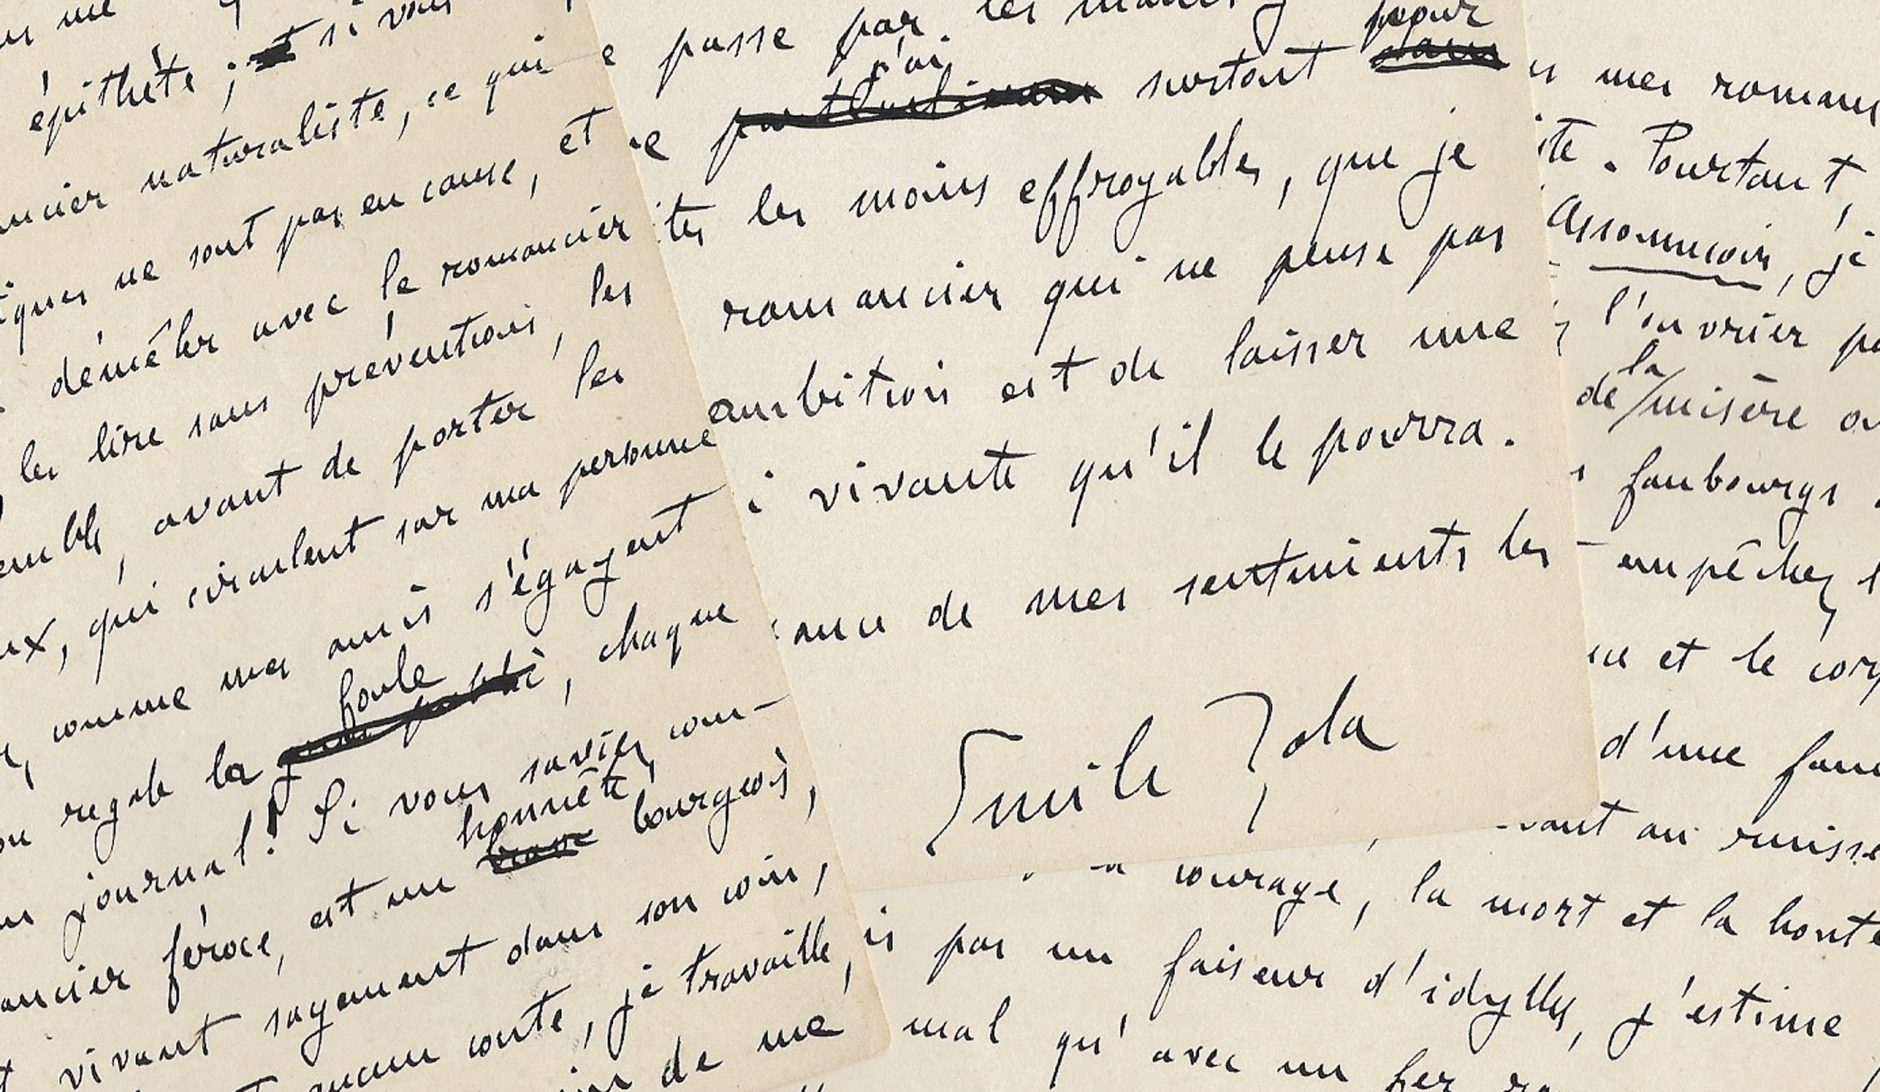 épithète ; si vous
romancier naturaliste, ce qui
tiques ne sont pas en cause, et
démêler avec le romancier
les lire sans préventions, les
emble, avant de porter les
ux, qui circulent sur ma personne
comme mes amis s'égayent
foule
on régale la public, chaque
journal! Si vous saviez com-
honnête
ancier féroce, est un brave bourgeois,
vivant sagement dans son coin,
aucun conte, je travaille,
de me
passe par les
j'ai pour
surtout dans
ites les moins effroyables, que je
romancier qui ne pense pas
ambition est de laisser une
i vivante qu'il le pourra.
ance de mes sentiments les
Emile Zola
mes romans
ite. Pourtant,
Assommoir, je
l'ouvrier
la
de misère
faubourgs
empêchez
et le
d'une
ant au ruisse
courage, la mort et la honte
is par un faiseur d'idylles, j'estime
mal qu'avec un fer